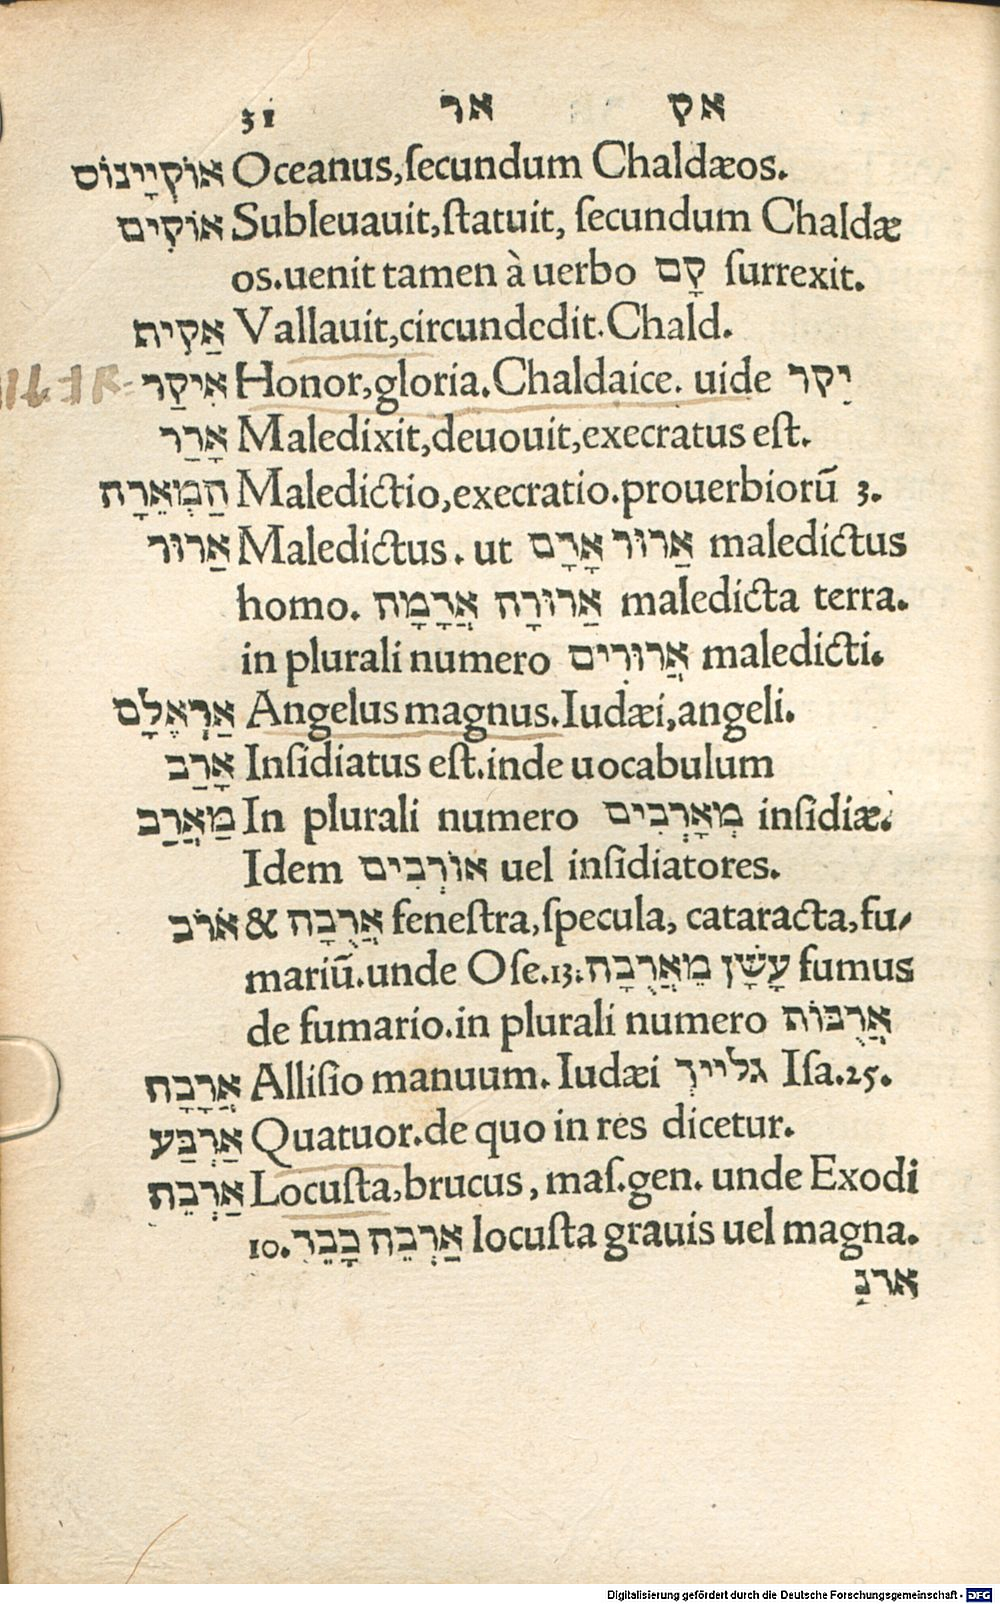 31 אר אק
אוֹקְיָינוֹס Oceanus,ſecundum Chaldæos.
אוֹקִים Subleuauit,ſtatuit, ſecundum Chaldæ
os.uenit tamen à uerbo קָם ſurrexit.
אַקִית Vallauit,circundedit.Chald.
אִיקַר Honor,gloria.Chaldaice. uide יְקר
אָרַר Maledixit,deuouit,execratus eſt.
הַמְאֵרָה Maledictio,execratio.prouerbiorū 3.
אַרוּר Maledictus. ut אַרוּר אָרָם maledictus
homo. אַרוּרָה אֲרָמָה maledicta terra.
in plurali numero אֲרוּרִים maledicti.
אַרְאֶלָם Angelus magnus.Iudæi,angeli.
אָרַב Inſidiatus eſt.inde uocabulum
מַאֲרַב In plurali numero מְאָרְבִים inſidiæ.
Idem אוֹרְבִים uel inſidiatores.
אֹרֹב & אֲרֻבָּה feneſtra,ſpecula, cataracta,fu⸗
mariū.unde Oſe.13.עָשָׁן מֵאֲרֻבָּה fumus
de fumario.in plurali numero אֲרֻבּוֹת
אֲרָבָה Alliſio manuum. Iudæi גלייךְ Iſa.25.
אַרְבַּע Quatuor.de quo in res dicetur.
אַרְבֵּה Locuſta,brucus, maſ.gen. unde Exodi
10.אַרְבֵּה כָּבֵר locuſta grauis uel magna.
ארגָ